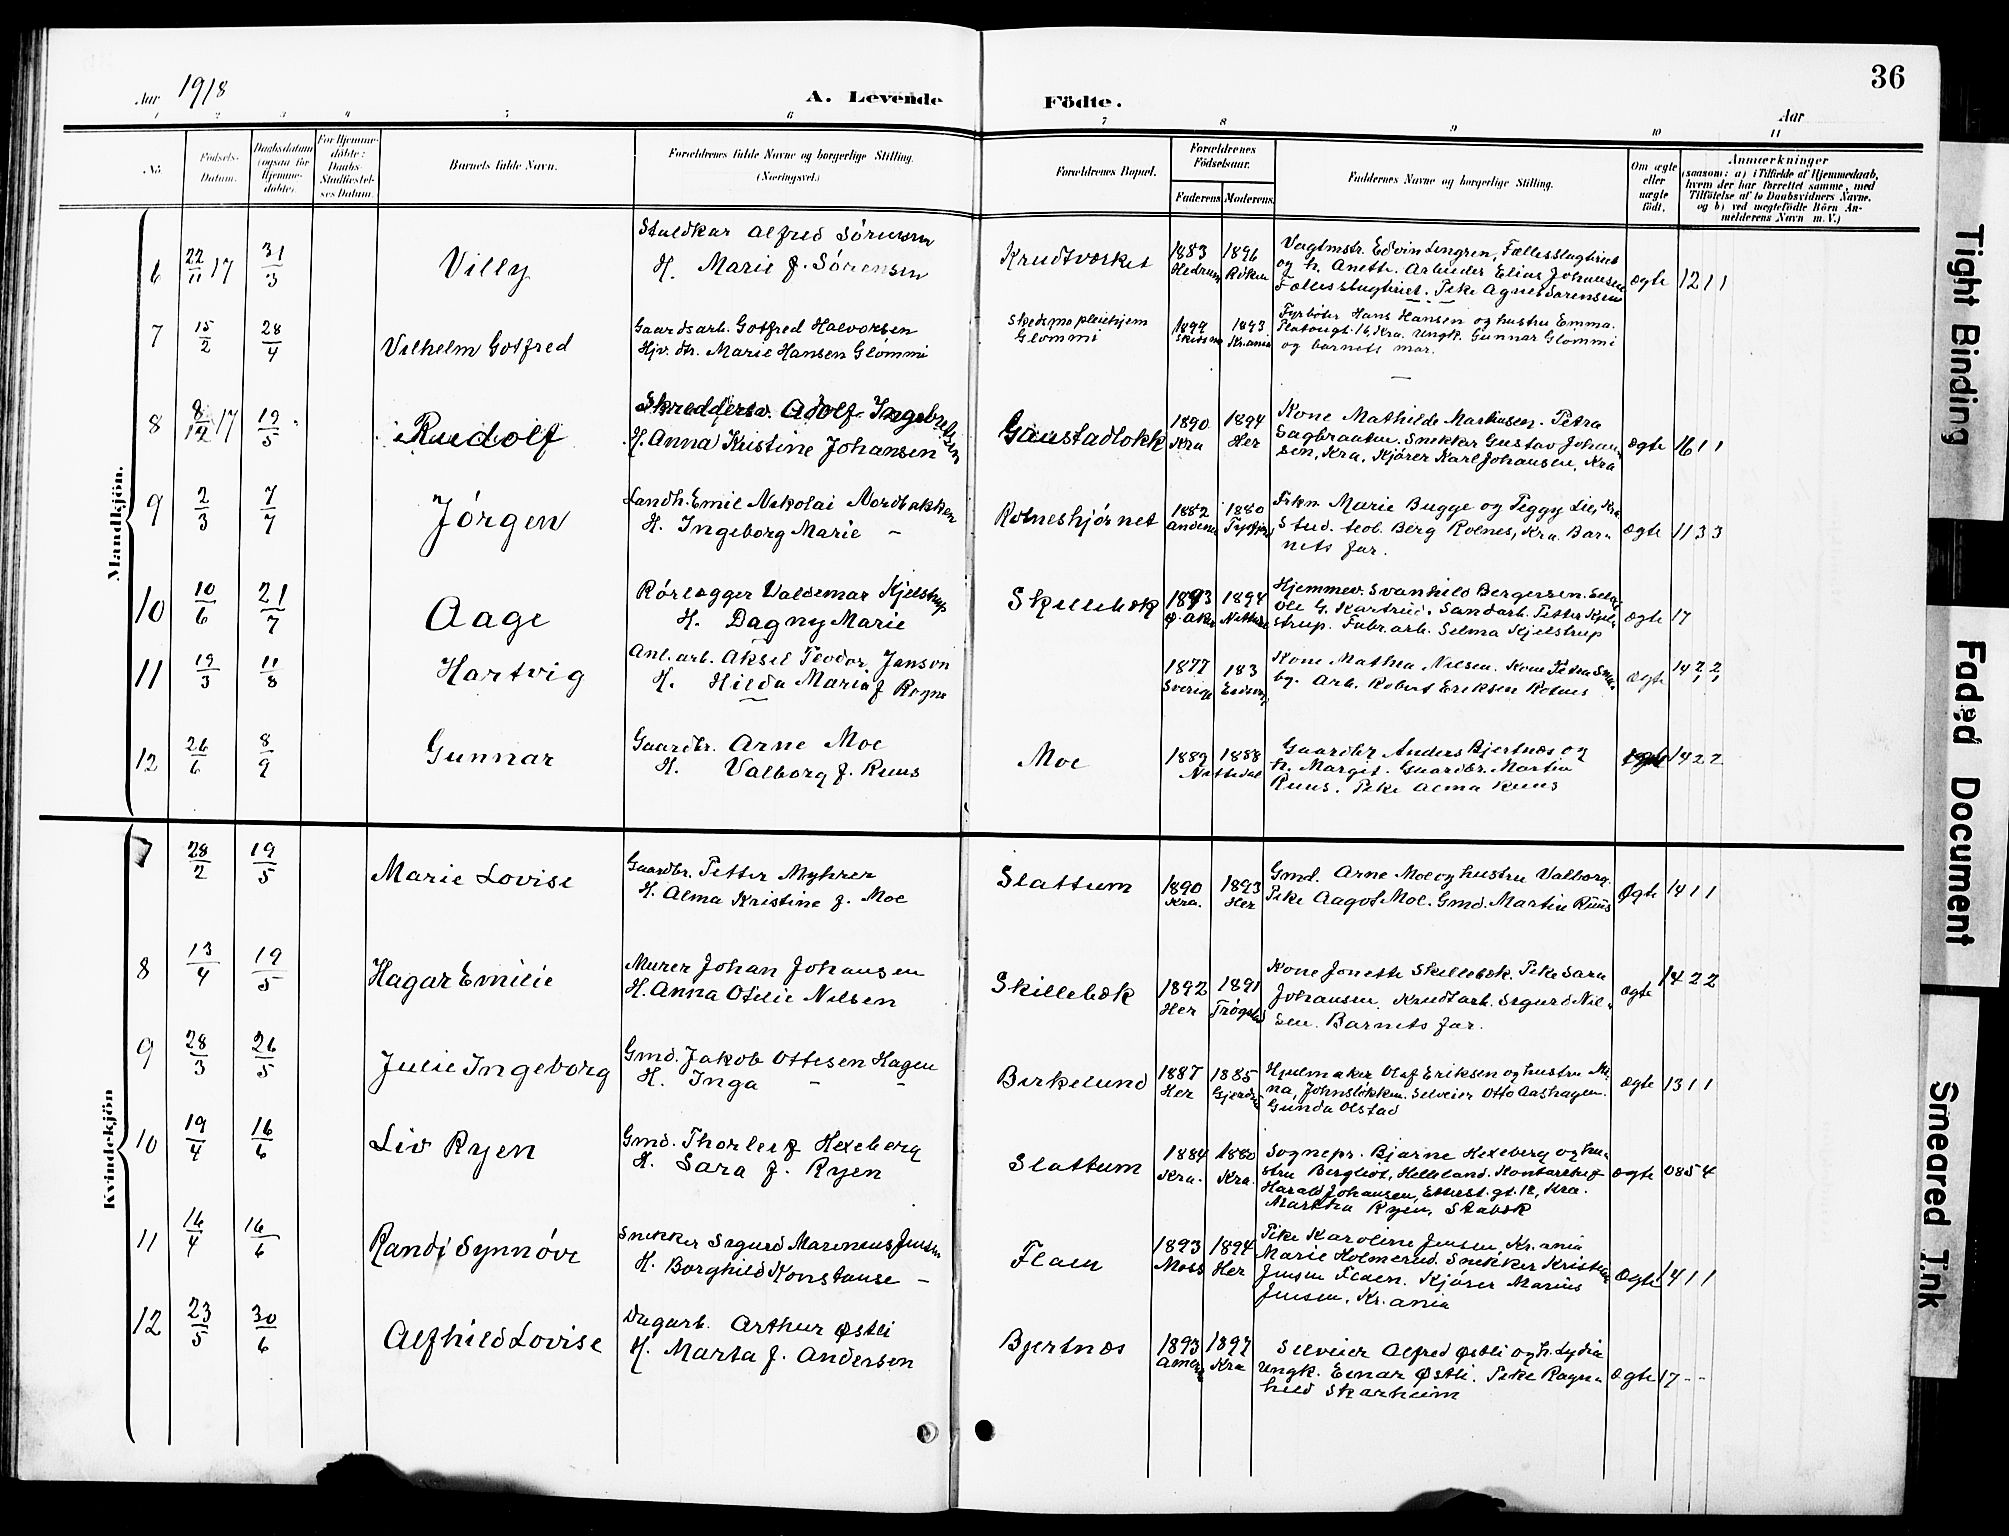 36
Aar 1918
A. Levende Födte.
Aar
1 2 3 4 5 6 7 8 9 10 11
No. Födsels-Datum. Daabsdatum (ogsaa for Hjemmedöbte). For Hjemmedöbte: Daabs-Stadfæstelses Datum. Barnets fulde Navn. Forældrenes fulde Navne og borgerlige Stilling. (Næringsvei.) Forældrenes Bopæl. Forældrenes Födselsaar. Faderens Moderens Faddernes Navne og borgerlige Stilling. Om ægte eller uægte födt. Anmærkninger
(saasom: a) i Tilfælde af Hjemmedaab, hvem der har forrettet samme, med Tilföielse af to Daabsvidners Navne, og b) ved uægtefödte Börn Anmelderens Navn m. V.)
Mandkjön.
6 22/11 17 31/3 Villy
Staldkar Alfred Sörensen
H. Marie f. Sörensen
Krudtværket
1883 Hedrum 1896 Röken
Vagtmstr. Edvin Lengren, Fællesslagteriet
og h. Anette. Arbeider Elias Johansen
Fællesslagteriet. Pike Agnes Sörensen
ægte 12 1 1
7 15/2 28/4 Vilhelm Gotfred
Gaardsarb. Gotfred Halvorsen
Hjv. dtr. Marie Hansen Glömmi
Skedsmo pleiehjem
Glömmi
1893 Kr.ania
Fyrböter Hans Hansen og hustru Emma.
Platougt. 16, Kra. Ungk. Gunnar Glömmi
og barnets mor.
8 8/12 17 19/5 Rudolf
Skreddersv. Adolf Ingebretsen
H. Anna Kristine Johansen
Gaustadlökk
1890 Kra 1894 Her
Kone Mathilde Markusen. Petra
Sagbraaten. Snekker Gustav Johan-
sen, Kra. Kjörer Karl Johansen, Kra
ægte 16 1 1
9 2/3 7/7 Jörgen
Landh. Emil Nikolai Nordbakken
H. Ingeborg Marie –
Rotneshjörnet
1882 Andenes 1880
Frkn. Marie Bugge og Peggy Lie, Kra
Stud. teol. Berg Rotnes, Kra. Bar-
nets far.
ægte 11 3 3
10 10/6 21/7 Aage
Rörlægger Valdemar Kjelstrup
H. Dagny Marie
Skillebæk
1893 Ø. Aker 1894
Hjemmev. Svanhild Bergersen.
Ole G. Kartrud. Sandarb. Petter Kjel-
strup. Fabr.arb. Selma Kjelstrup
ægte 17
11 19/3 11/8 Hartvig
Anl. arb. Aksel Teodor Janson
H. Hilda Maria f Rogne
1877 Sverige 183
Kone Mathea Nilsen. Kone Petra
by. Arb. Robert Eriksen Rotnes
ægte 14 2 2
12 26/6 8/9 Gunnar
Gaardbr. Arne Moe
H. Valborg f. Ruus
Moe
1889 1888
Nittedal
Gaardbr. Anders Bjertnæs og
h. Margit. Gaardbr. Martin
Ruus. Pike Alma Ruus
ægte 14 2 2
Kvindekjön
7 28/2 19/5 Marie Lovise
Gaardbr. Petter Myhrer
H. Alma Kristine f. Moe
Slattum
1890 Kra. 1893 Her
Gmd. Arne Moe og hustru Valborg.
Pike Aagot Moe. Gmd. Martin Ruus
Ægte 14 1 1
8 13/4 19/5 Hagar Emilie
Murer Johan Johansen
H. Anna Otilie Nilsen
Skillebæk
1892 Her 1891 Trøgstad
Kone Jonette Skillebæk. Pike Sara
Johansen. Krudtarb. Sigurd Nil-
sen. Barnets far.
ægte 14 2 2
9 28/3 26/5 Julie Ingeborg
Gmd. Jakob Ottesen Hagen
H. Inga – –
Birkelund
1887 Her 1885 Gjerdr.
Hjulmaker Olaf Eriksen og hustru Mi-
na, Johnsløkken. Selveier Otto Aashagen.
Gunda Olstad
ægte 13 1 1
10 19/4 16/6 Liv Ryen
Gmd. Thorleif Hexeberg
H. Sara f. Ryen
Slattum
1884 Kra. 1880 Kra.
Sognepr. Bjarne Hexeberg og hu-
stru Bergliot, Helleland. Kontorchef
Harald Johansen, Eilert gt. 18, Kra.
Martha Ryen, Stabæk
ægte 08 5 4
11 16/4 16/6 Randi Synnöve
Snekker Sigurd Marenius Jensen
H. Borghild Konstanse –
Flaen
1893 Moss 1894 Her
Pike Karoline Jensen, Kr.ania
Marie Holmerud. Snekker Kristian
Jensen Flaen. Kjörer Marius
Jensen, Kr.ania
Ægte 14 1 1
12 23/5 30/6 Alfhild Lovise
Dagarb. Arthur Østli
H. Marta f. Andersen
Bjertnæs
1893 1897 Kra
Selveier Alfred Østli og h. Lydia
Ungk. Einar Østli. Pike Ragn-
hild Skarheim
ægte 17 - -
Tight Binding
Faded Document
Smeared Ink